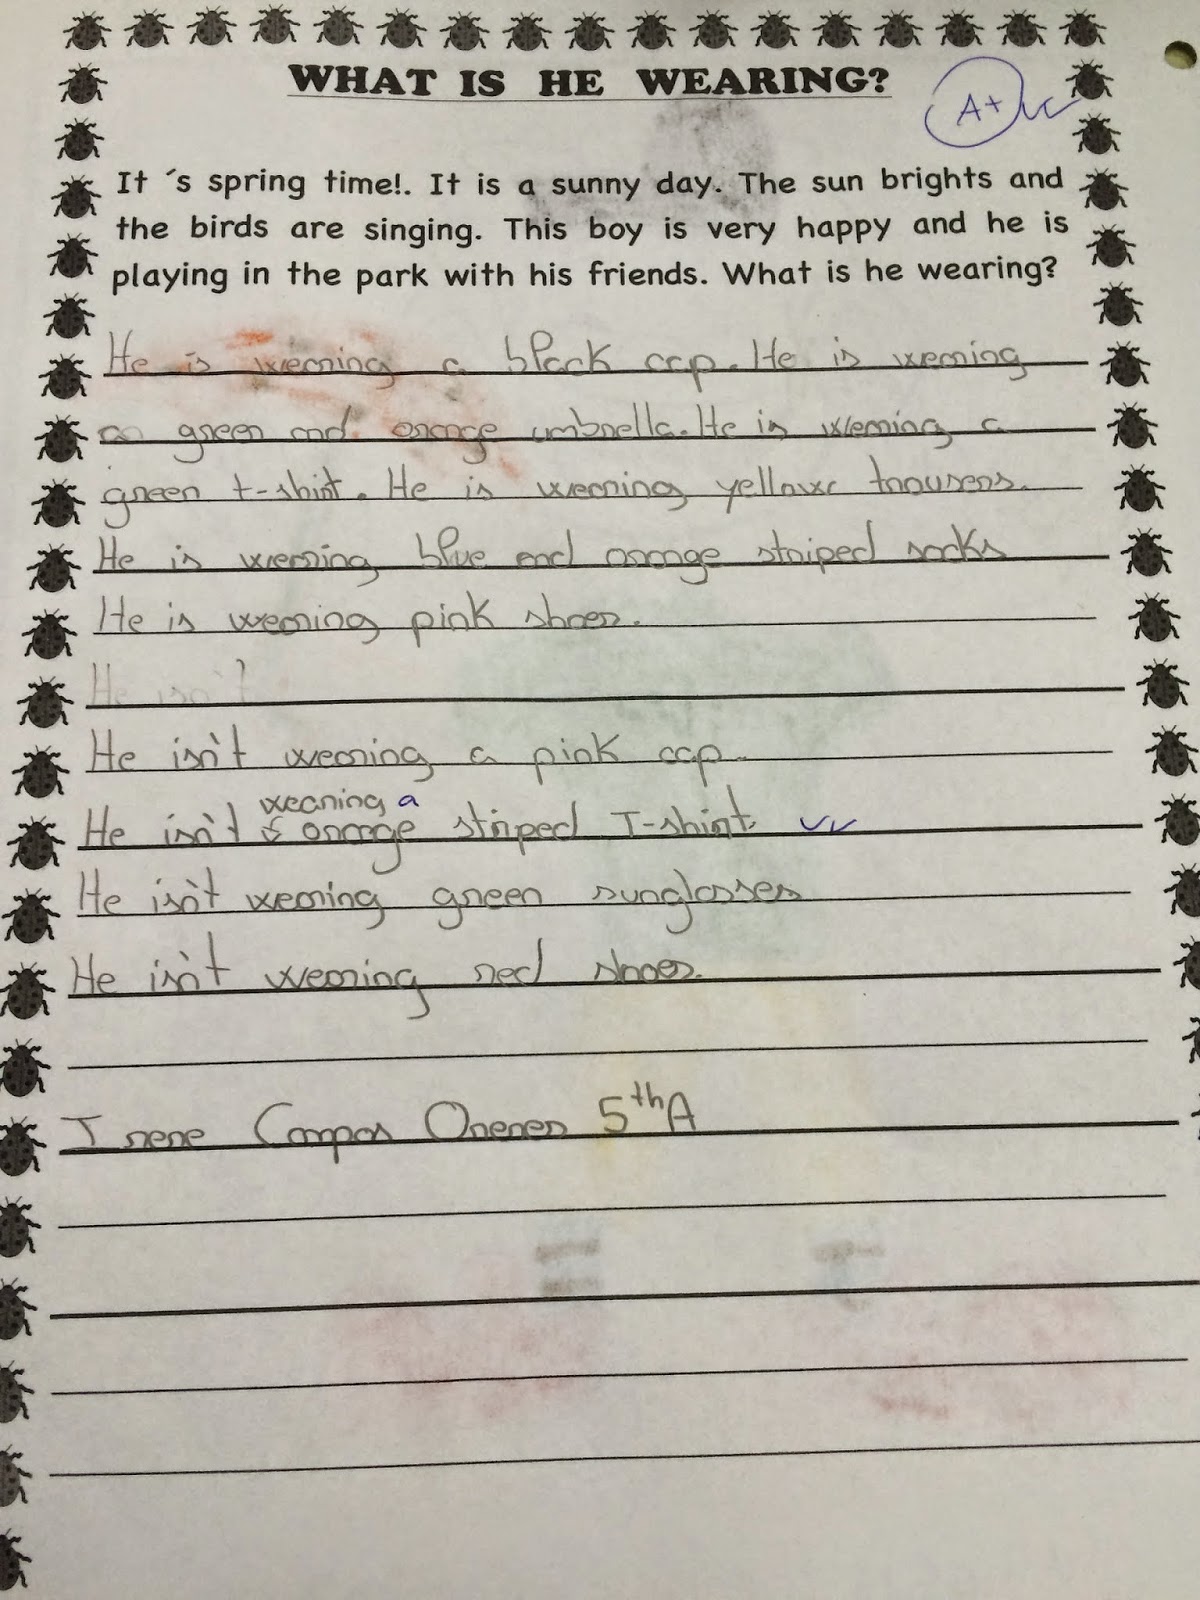 WHAT IS HE WEARING?
A+
It ´s spring time!. It is a sunny day. The sun brights and
the birds are singing. This boy is very happy and he is
playing in the park with his friends. What is he wearing?
He is wearing a black cap. He is wearing
a green and orange umbrella. He is wearing a
green t-shirt. He is wearing yellow trousers.
He is wearing blue and orange striped socks
He is wearing pink shoes.
He isn't
He isn't wearing a pink cap.
wearing a
He isn't orange striped T-shirt.
He isn't wearing green sunglasses
He isn't wearing red shoes.
Irene Campos 5th A